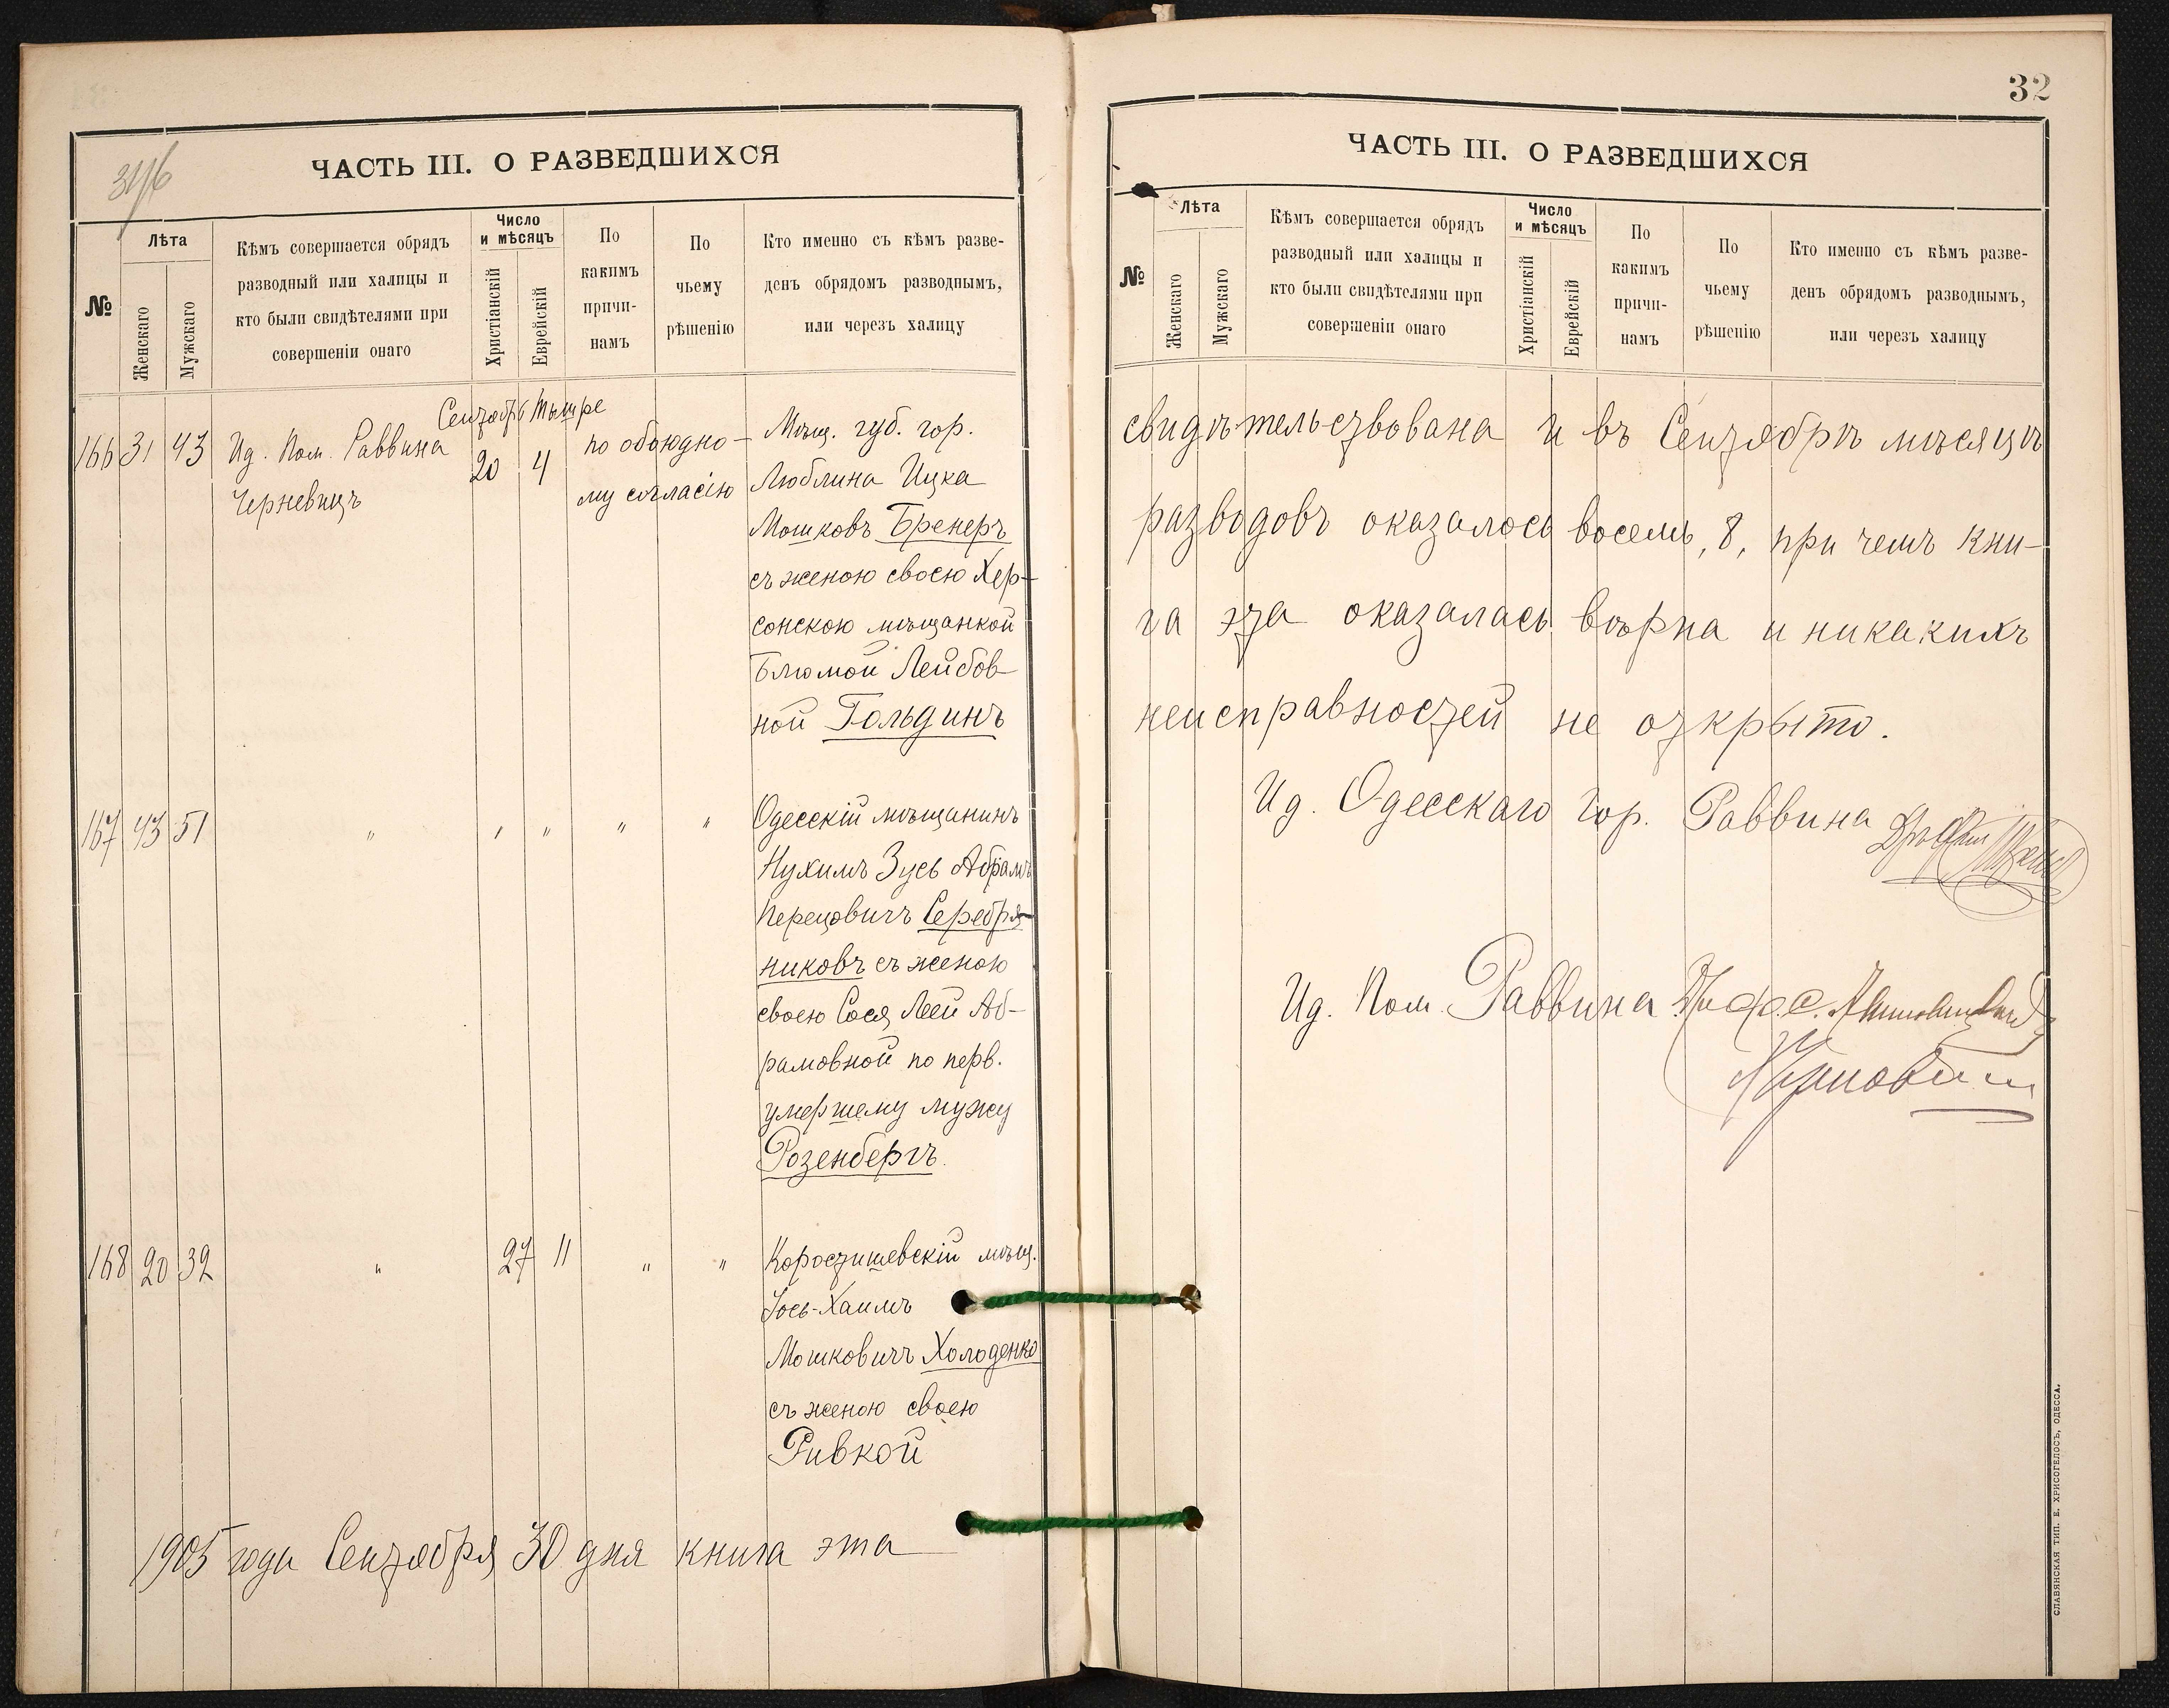 ЧАСТЬ III. О РАЗВЕДШИХСЯ
№
Лѣта
Женскаго
Мужскаго
Кѣмъ совершается обрядъ
разводный или халицы и
кто были свидѣтелями при
совершеніи онаго
Число
и мѣсяцъ
Христіанскій
Еврейскій
По
какимъ
причи-
намъ
По
чьему
рѣшенію
Кто именно съ кѣмъ разве-
денъ обрядомъ разводнымъ,
или черезъ халицу
Сентябрь Тышре
166 31 43
Ид. Пом. Раввина
Черневицъ
20 4
по обоюдно-
му согласію
Мѣщ. губ. гор.
Люблина Ицка
Мошковъ Бренеръ
съ женою своею Хер-
сонскою мѣщанкой
Блюмой Лейбов-
ной Гольдинъ
167 43 51
" " " " "
Одесскій мѣщанинъ
Нухимъ Зусь Абрамъ
Перецовичъ Серебря-
никовъ съ женою
своею Сося Леей Аб-
рамовной по перв.
умершему мужу
Розенбергъ.
168 20 32
" 27 11 " "
Коростишевскій мѣщ.
Іось-Хаимъ
Мошковичъ Холоденко
съ женою своею
Ривкой
1905 года Сентября 30 дня книга эта
32
ЧАСТЬ III. О РАЗВЕДШИХСЯ
№
Лѣта
Женскаго
Мужскаго
Кѣмъ совершается обрядъ
разводный или халицы и
кто были свидѣтелями при
совершеніи онаго
Число
и мѣсяцъ
Христіанскій
Еврейскій
По
какимъ
причи-
намъ
По
чьему
рѣшенію
Кто именно съ кѣмъ разве-
денъ обрядомъ разводнымъ,
или черезъ халицу
свидѣтельствована и въ Сентябрѣ мѣсяцѣ
разводовъ оказалось восемь, 8, при чемъ кни-
га эта оказалась вѣрна и никакихъ
неисправностей не открыто.
Ид. Одесскаго Гор. Раввина
Ид. Пом. Раввина
СЛАВЯНСКАЯ ТИП. Е. ХРИСОГЕЛОСЪ, ОДЕССА.